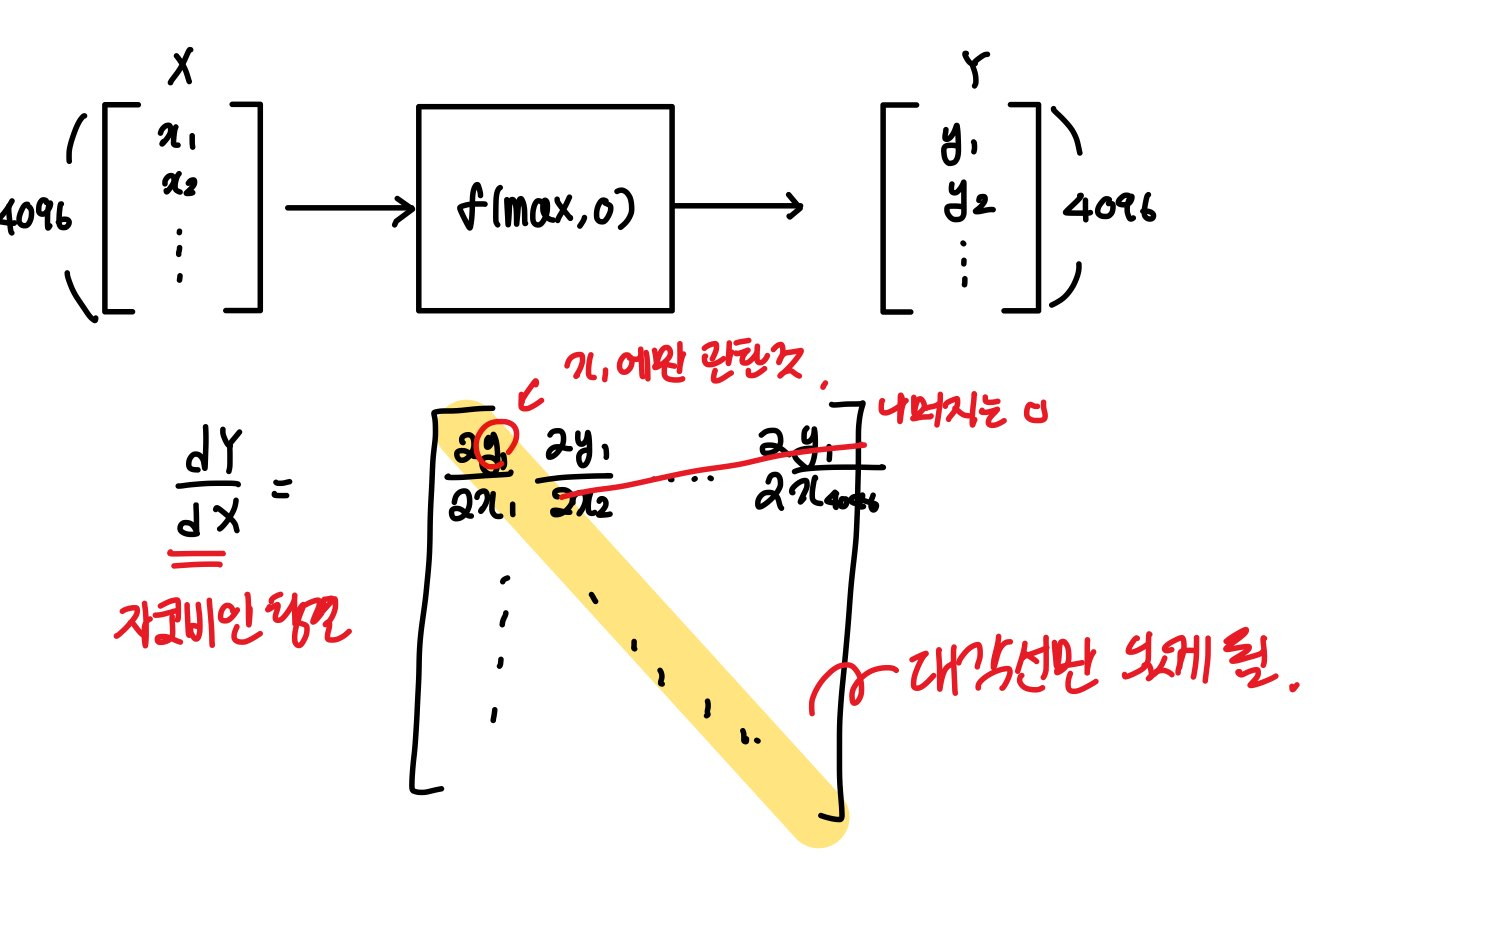 X
Y
x1
x2
4096
f(max,0)
y1
y2
4096
x1에만 관한것.
나머지는 0
dY/dX =
∂y1/∂x1 ∂y1/∂x2 ... ∂y1/∂x4096
자코비인 행렬
대각선만 있게 됨.